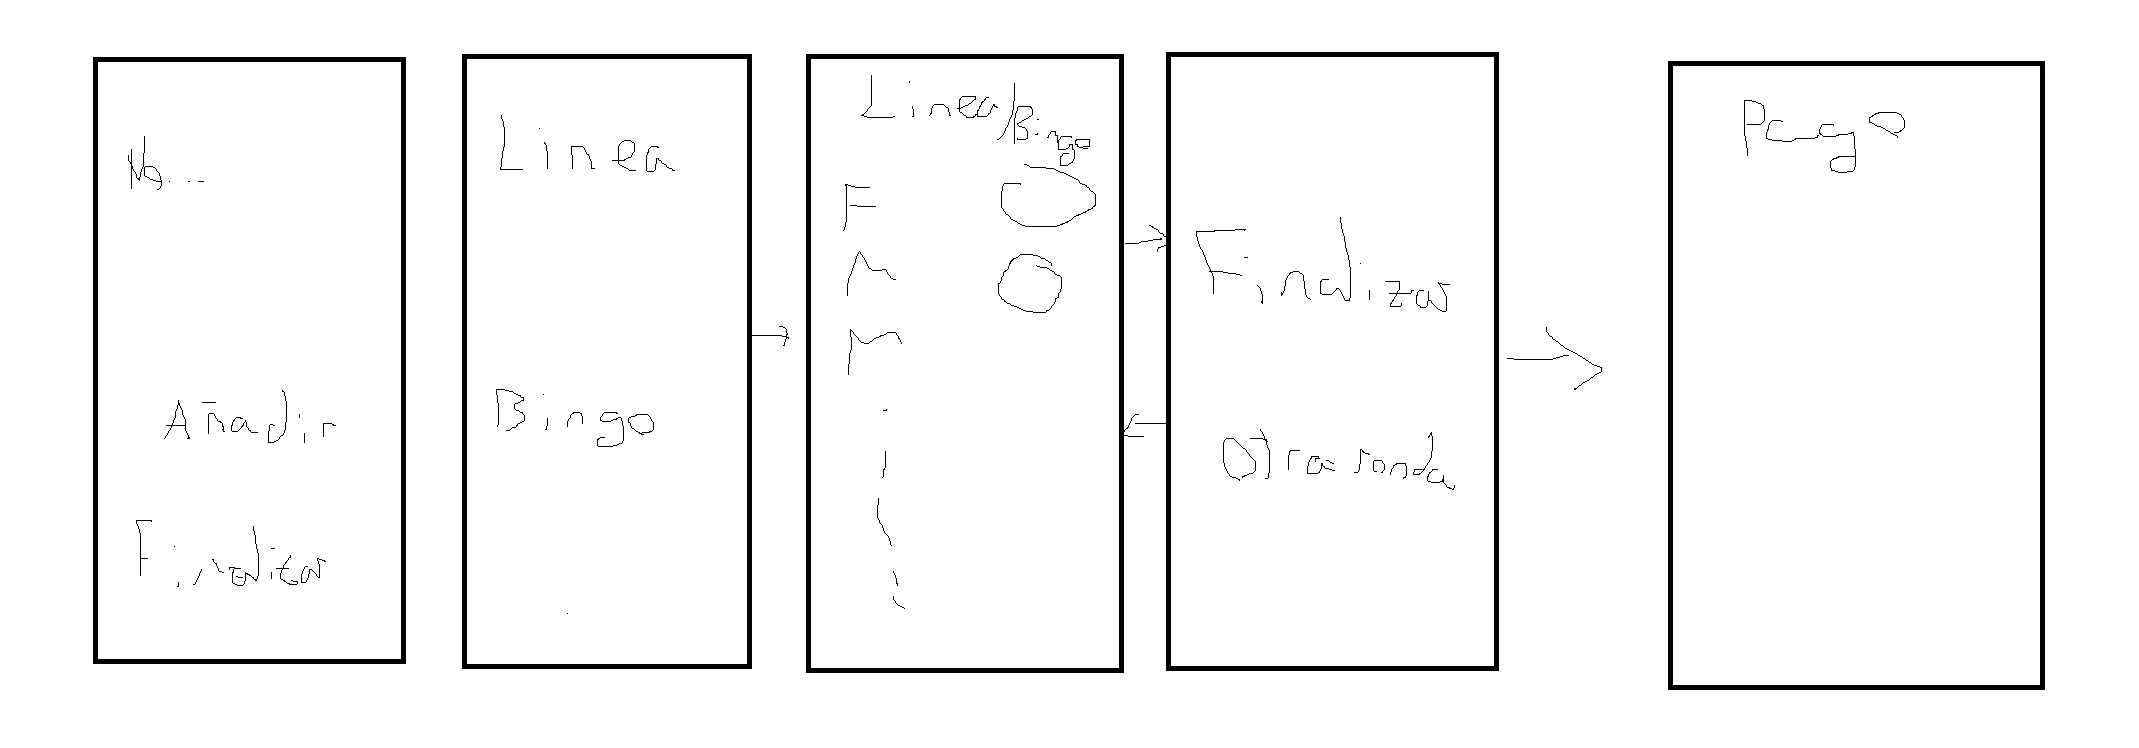 No...
Añadir
Finalizar
Linea
Bingo
Linea/Bingo
F
M
M
Finalizar
Otra ronda
Pago